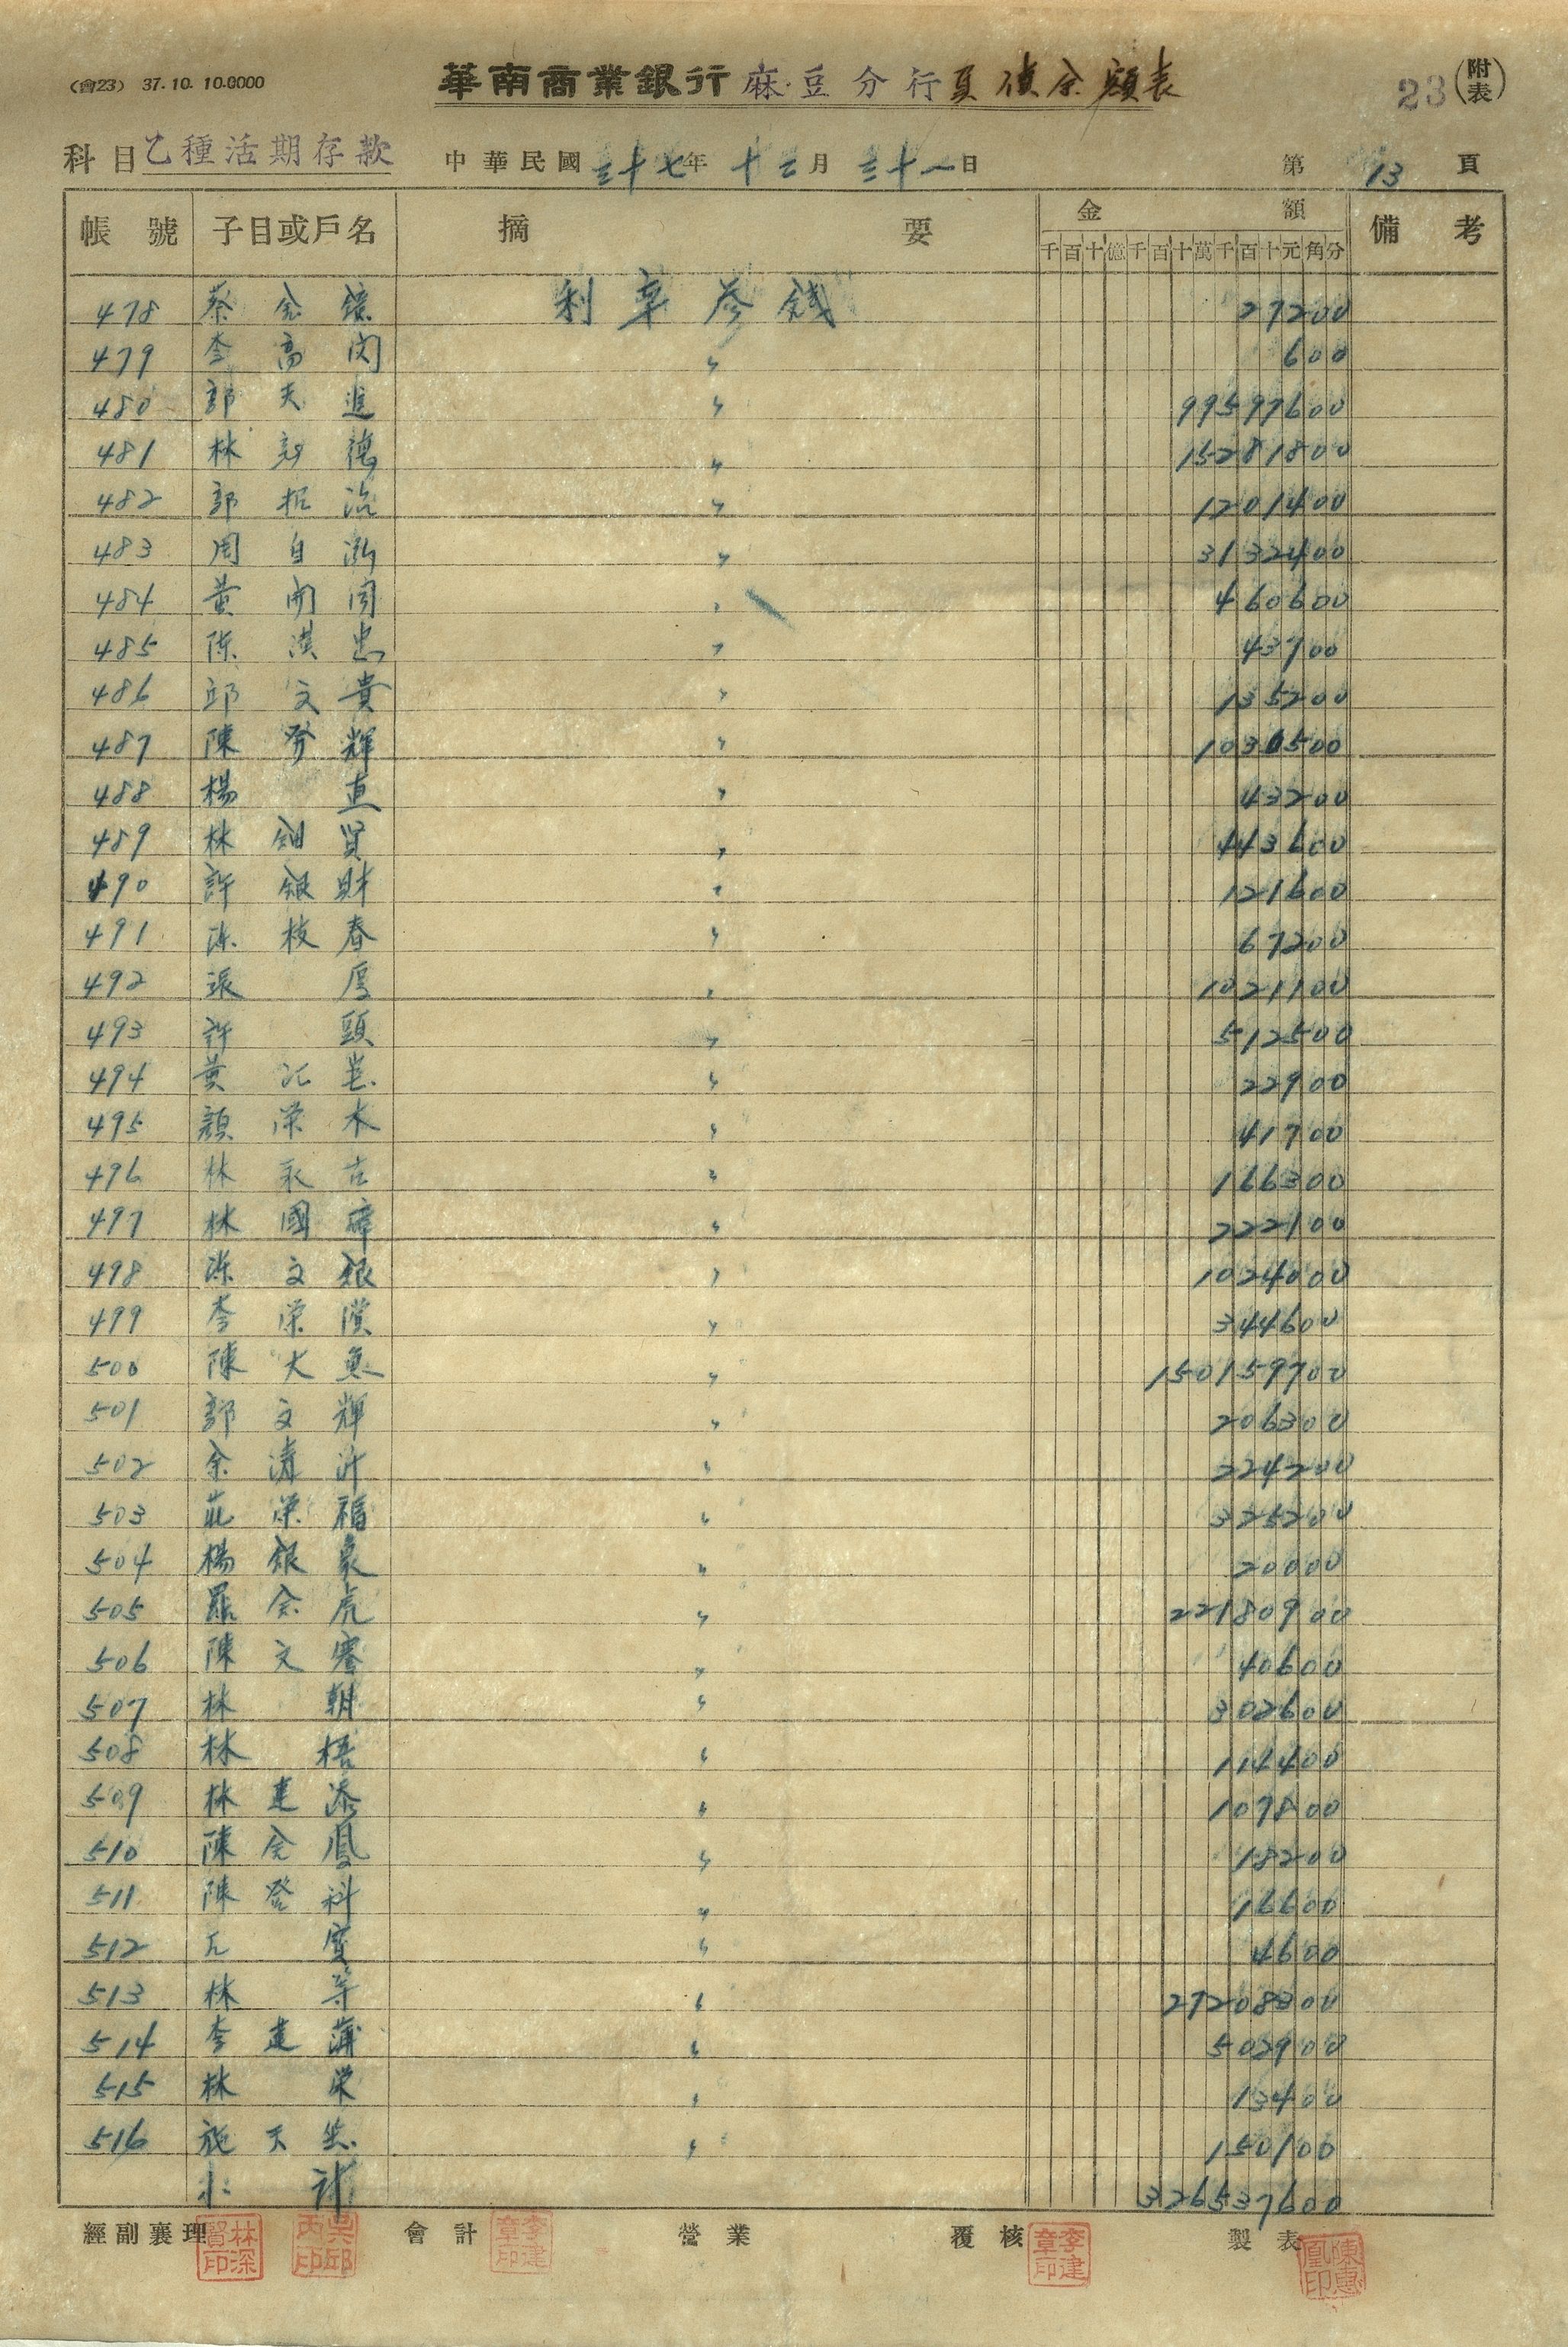 (會23) 37.10.10.0000
華南商業銀行麻豆分行負債余額表
23(附表)
科目乙種活期存款 中華民國三十七年十二月三十一日 第13頁
帳號 子目或戶名 摘要 金額 備考
千百十億千百十萬千百十元角分
478 蔡金鎮 利率參錢 27200
479 李高 〃 600
480 郭天進 〃 99597600
481 林 德 〃 15281800
482 郭振 〃 1201400
483 周自 〃 3132400
484 黃開 〃 460600
485 陳漢忠 〃 43700
486 邱文貴 〃 135200
487 陳登輝 〃 1030500
488 楊直 〃 43200
489 林鉗賢 〃 443600
490 許銀財 〃 121600
491 陳枝春 〃 67200
492 張厚 〃 1021100
493 許頭 〃 512500
494 黃 〃 22900
495 顏榮木 〃 41700
496 林永在 〃 166300
497 林國璋 〃 222100
498 陳文銀 〃 1024000
499 李榮濱 〃 344600
500 陳大魚 〃 150159700
501 郭文輝 〃 206300
502 余清沂 〃 224200
503 莊榮福 〃 325200
504 楊銀象 〃 20000
505 羅金虎 〃 22180900
506 陳文 〃 40600
507 林朝 〃 302600
508 林梧 〃 114400
509 林建添 〃 107800
510 陳金鳳 〃 18200
511 陳登科 〃 16600
512 寶 〃 4600
513 林等 〃 27208300
514 李建蒲 〃 502900
515 林榮 〃 13400
516 施天 〃 150100
小計 326537600
經副襄理 會計 營業 覆核 製表
林深賢印 吳邱丙印 李建章印 李建章印 陳惠凰印